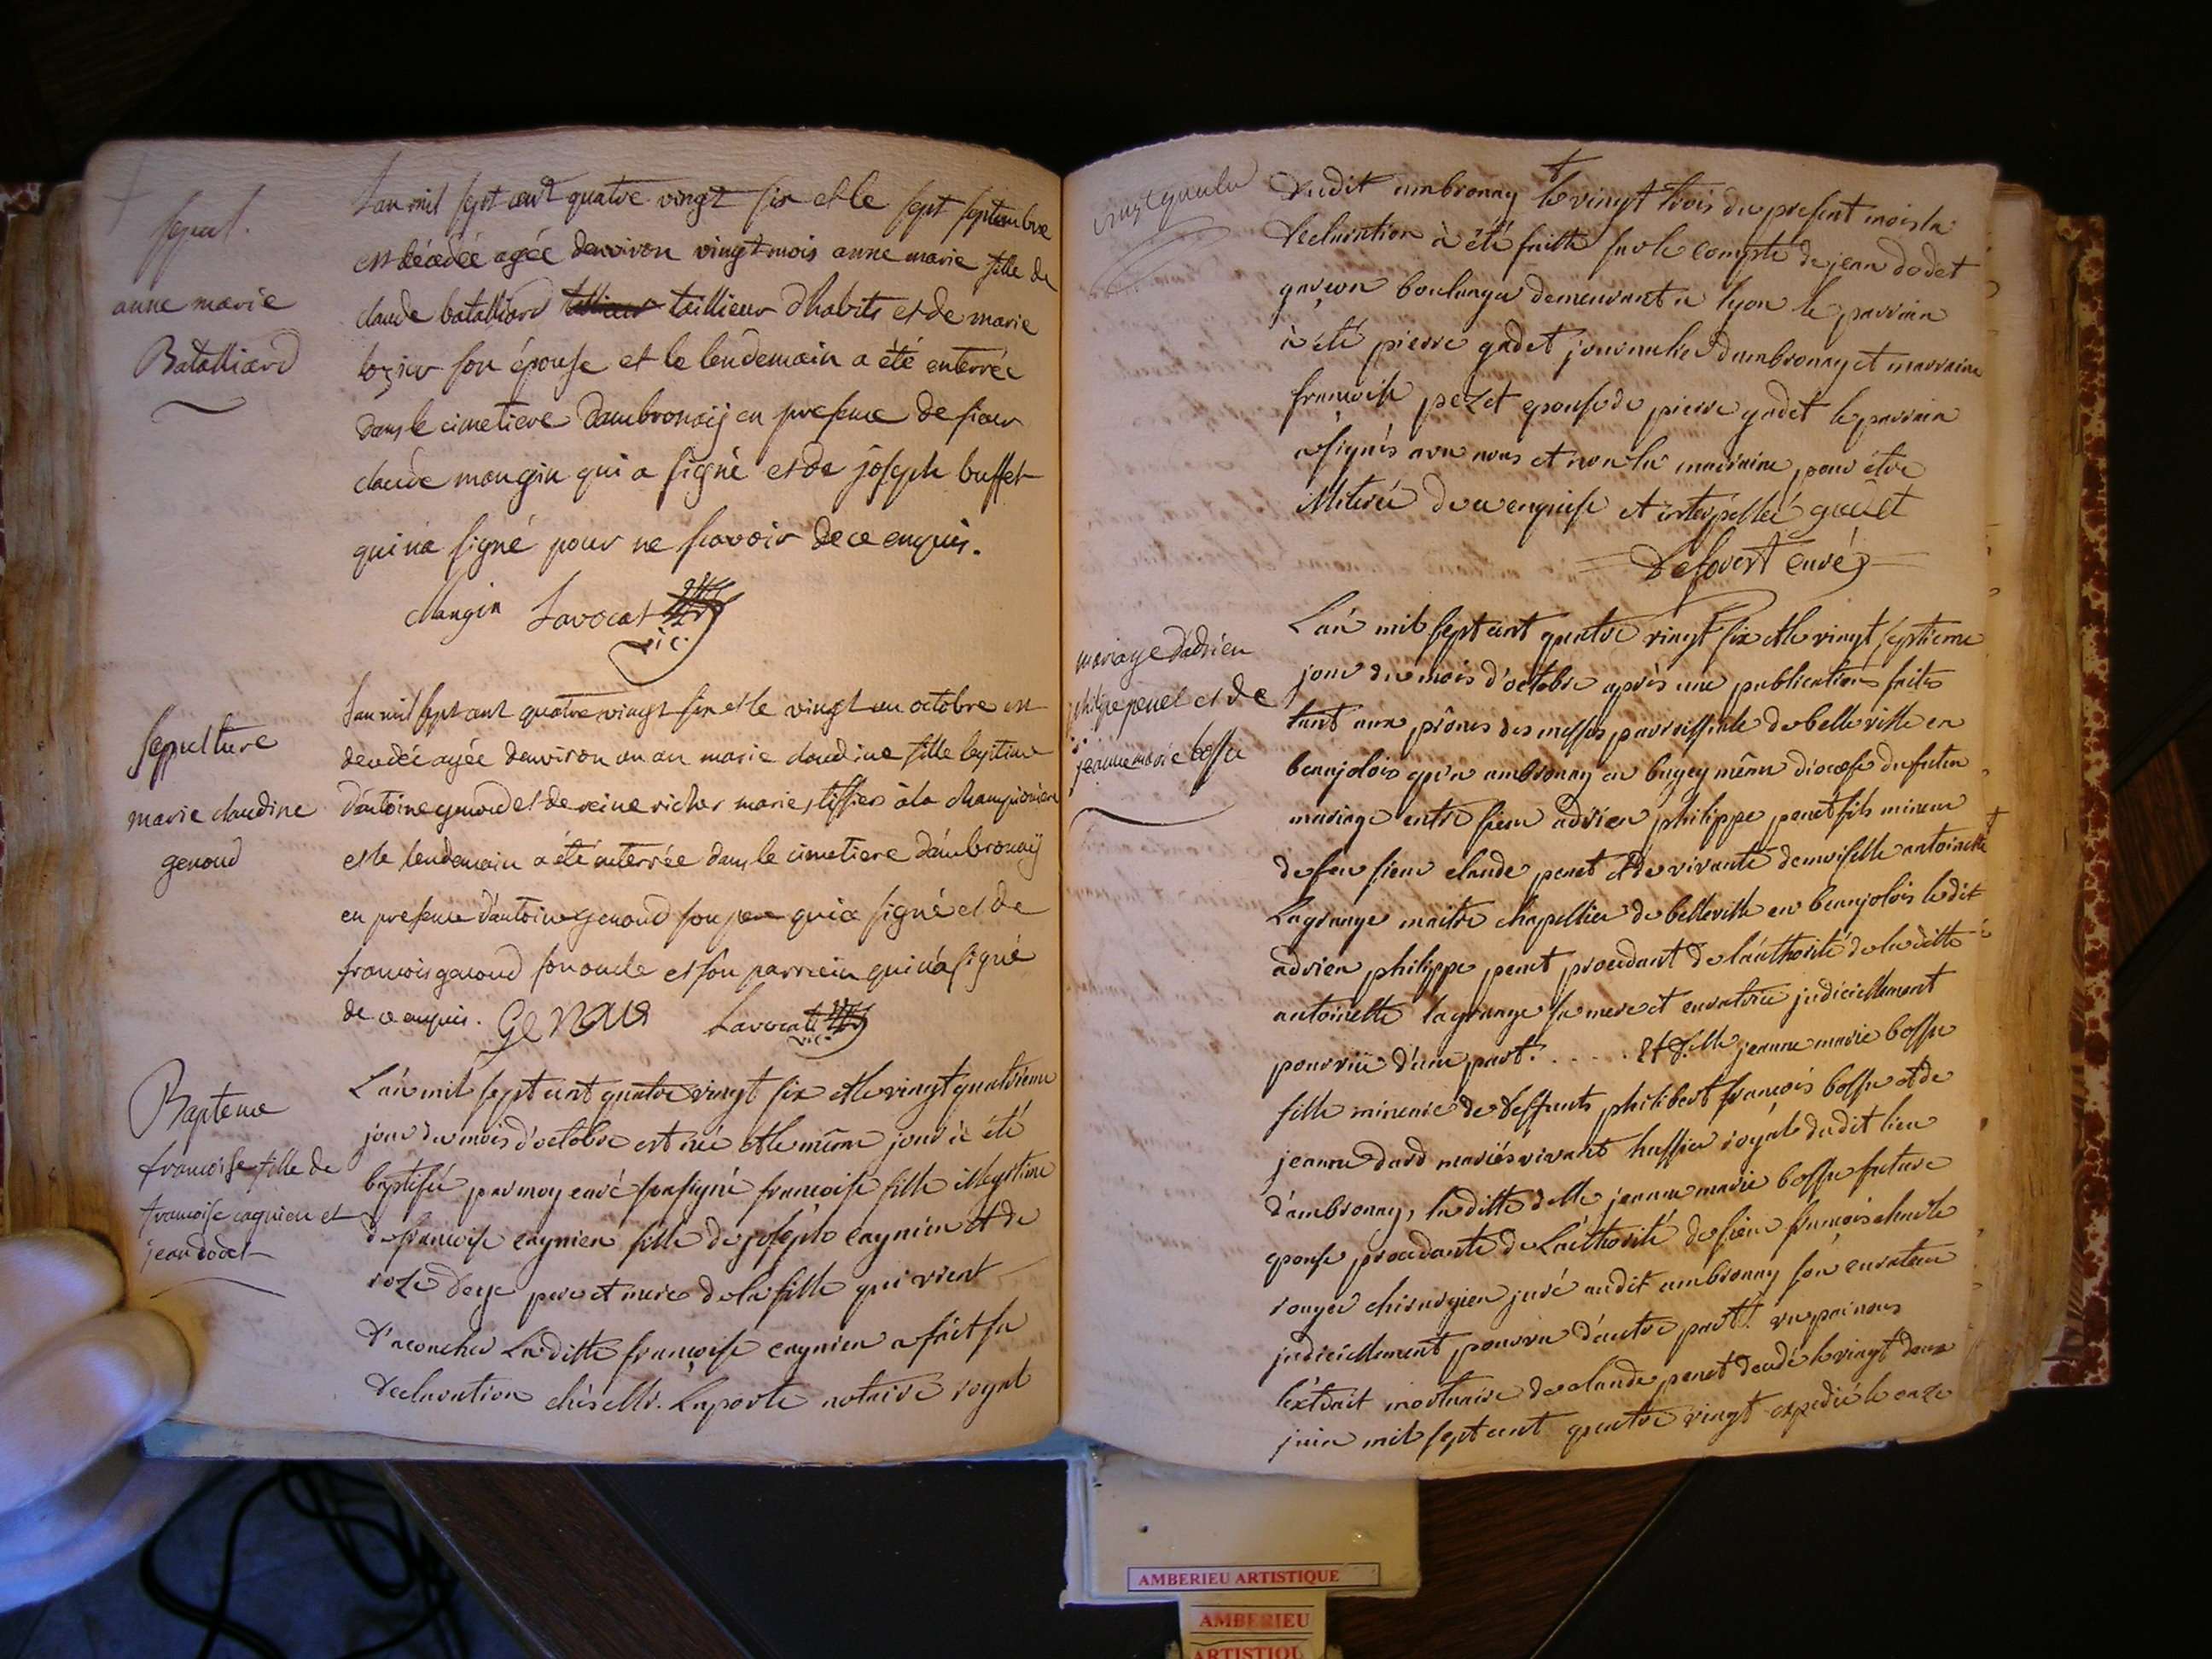 sepul.
anne marie
Batalliard
L'an mil sept cent quatre vingt six et le sept septembre
est décédée agée denviron vingt mois anne marie fille de
claude batalliard taillieur d'habits et de marie
son épouse et le lendemain a été enterrée
dans le cimetiere dambronaij en presence de sieur
claude mangin qui a signé et de joseph buffet
qui n'a signé pour ne scavoir de ce enquis.
Mangin Lavocat
vic.
sepulture
marie claudine
genoud
L'an mil sept cent quatre vingt six et le vingt un octobre est
decedée agée denviron un an marie claudine fille legitime
d'antoine genoud et de reine richer mariés, tissier à la championiere
et le lendemain a été enterrée dans le cimetiere d'ambronaij
en presence d'antoine genoud son pere qui a signé et de
francois genoud son oncle et son parrein qui n'a signé
de ce enquis. Genoud Lavocat
vic.
Bapteme
francoise fille de
francoise cagnien et
jean dodet
L'an mil sept cent quatre vingt six et le vingt quatrieme
jour du mois d'octobre est née et le même jour à été
baptisée par moy curé soussigné francoise fille illegitime
de francoise cagnien fille de joseph cagnien et de
roze pere et mere de la fille qui vient
d'acoucher La ditte françoise cagnien a fait sa
declaration chès Mr. Laporte notaire royal
dudit ambronay le vingt trois du present mois la
declaration à été faitte sur le compte de jean dodet
garçon boulanger demeurant a lyon le parrain
à été pierre gadet journalier d'ambronay et marraine
françoise pezet epouse de pierre gadet le parrain
a signés avec nous et non la marraine, pour être
illiterée de ce enquise et interpellée gadet
Desovert curé
mariage d'adrien
philipe penet et de
jeanne marie bossu
L'an mil sept cent quatre vingt six et le vingt septieme
jour du mois d'octobre après une publications faites
tant aux prônes des messes parroissiale de belleville en
beaujolois qu'a ambronay en bugey même diocese du futur
mariage entre sieur adrien philippe penet fils mineur
de feu sieur claude penet et de vivante demoiselle antoinette
Lagrange maitre chapellier de belleville en beaujolois ledit
adrien philippe penet procedant de l'authorité de la ditte
antoinette lagrange sa mere et curatrice judiciellement
pourvüe d'une part. . . . . . Et d.lle jeanne marie bossu
fille mineure de deffunts philibert françois bossu et de
jeanne dard mariés vivant huissier royal dudit lieu
d'ambronay, la ditte d.lle jeanne marie bossu future
epouse procedante de l'authorité de sieur françois charle
rouyer chirurgien juré audit ambronay son curateur
judiciellement pourvu d'autre part. vu par nous
l'extrait mortuaire de claude penet decedé le vingt deux
juin mil sept cent quatre vingt expedié le onze
AMBERIEU ARTISTIQUE
AMBERIEU
ARTISTIQU